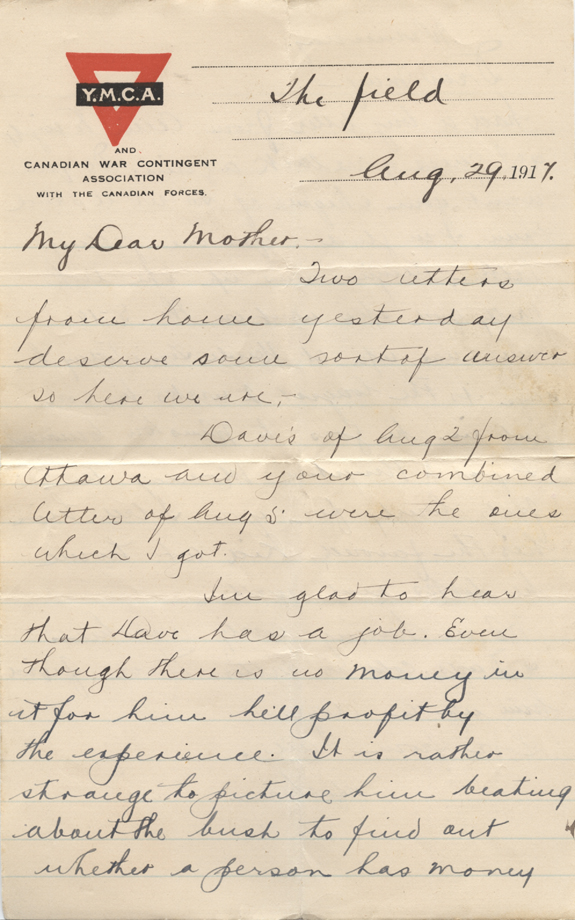 Y.M.C.A.
AND
CANADIAN WAR CONTINGENT
ASSOCIATION
WITH THE CANADIAN FORCES.
The field
Aug. 29, 1917.
My Dear Mother. -
Two letters
from home yesterday
deserve some sort of answer
so here we are, -
Dave's of Aug 2 from
Ottawa and your combined
letter of Aug 5 were the ones
which I got.
I'm glad to hear
that Dave has a job. Even
though there is no money in
it for him he'll profit by
the experience. It is rather
strange to picture him beating
about the bush to find out
whether a person has money